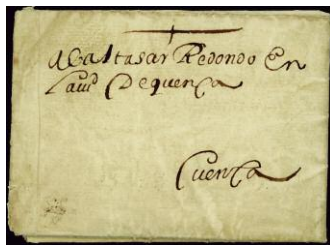 a Baltasar Redondo En
la ciu Dequenca
Cuenca